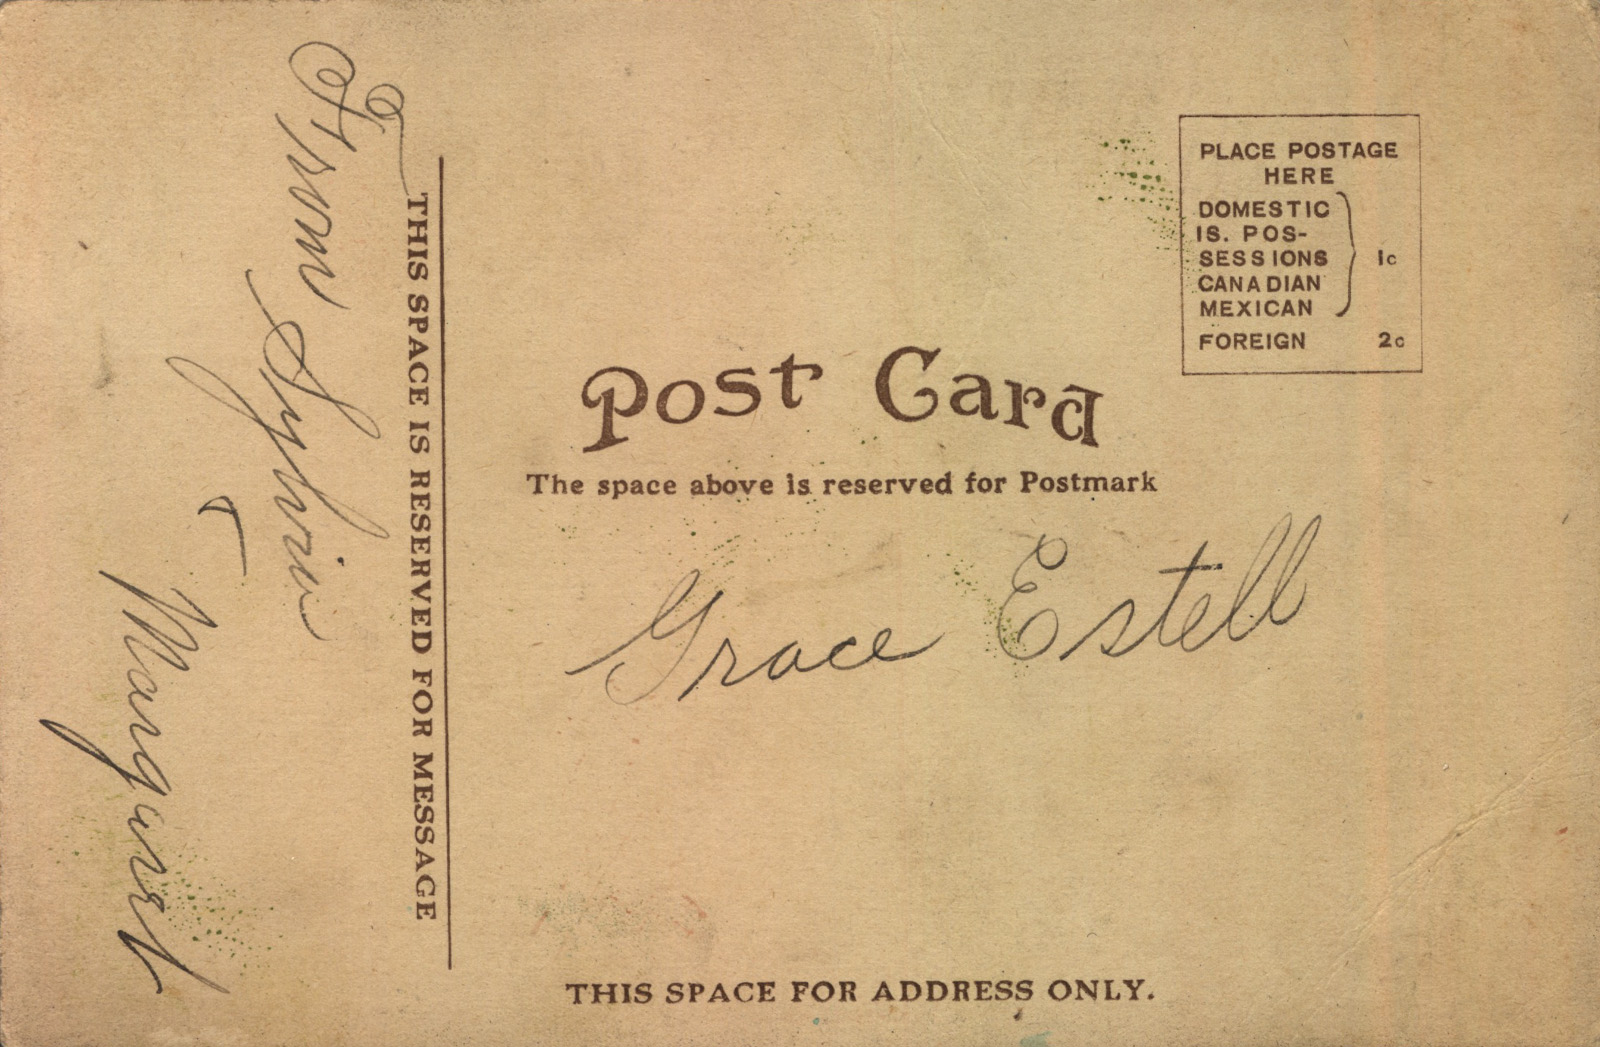 From Sylvia
&
Margaret
THIS SPACE IS RESERVED FOR MESSAGE
PLACE POSTAGE
HERE
DOMESTIC
IS. POS-
SESSIONS
CANADIAN
MEXICAN
1c
FOREIGN 2c
Post Card
The space above is reserved for Postmark
Grace Estell
THIS SPACE FOR ADDRESS ONLY.